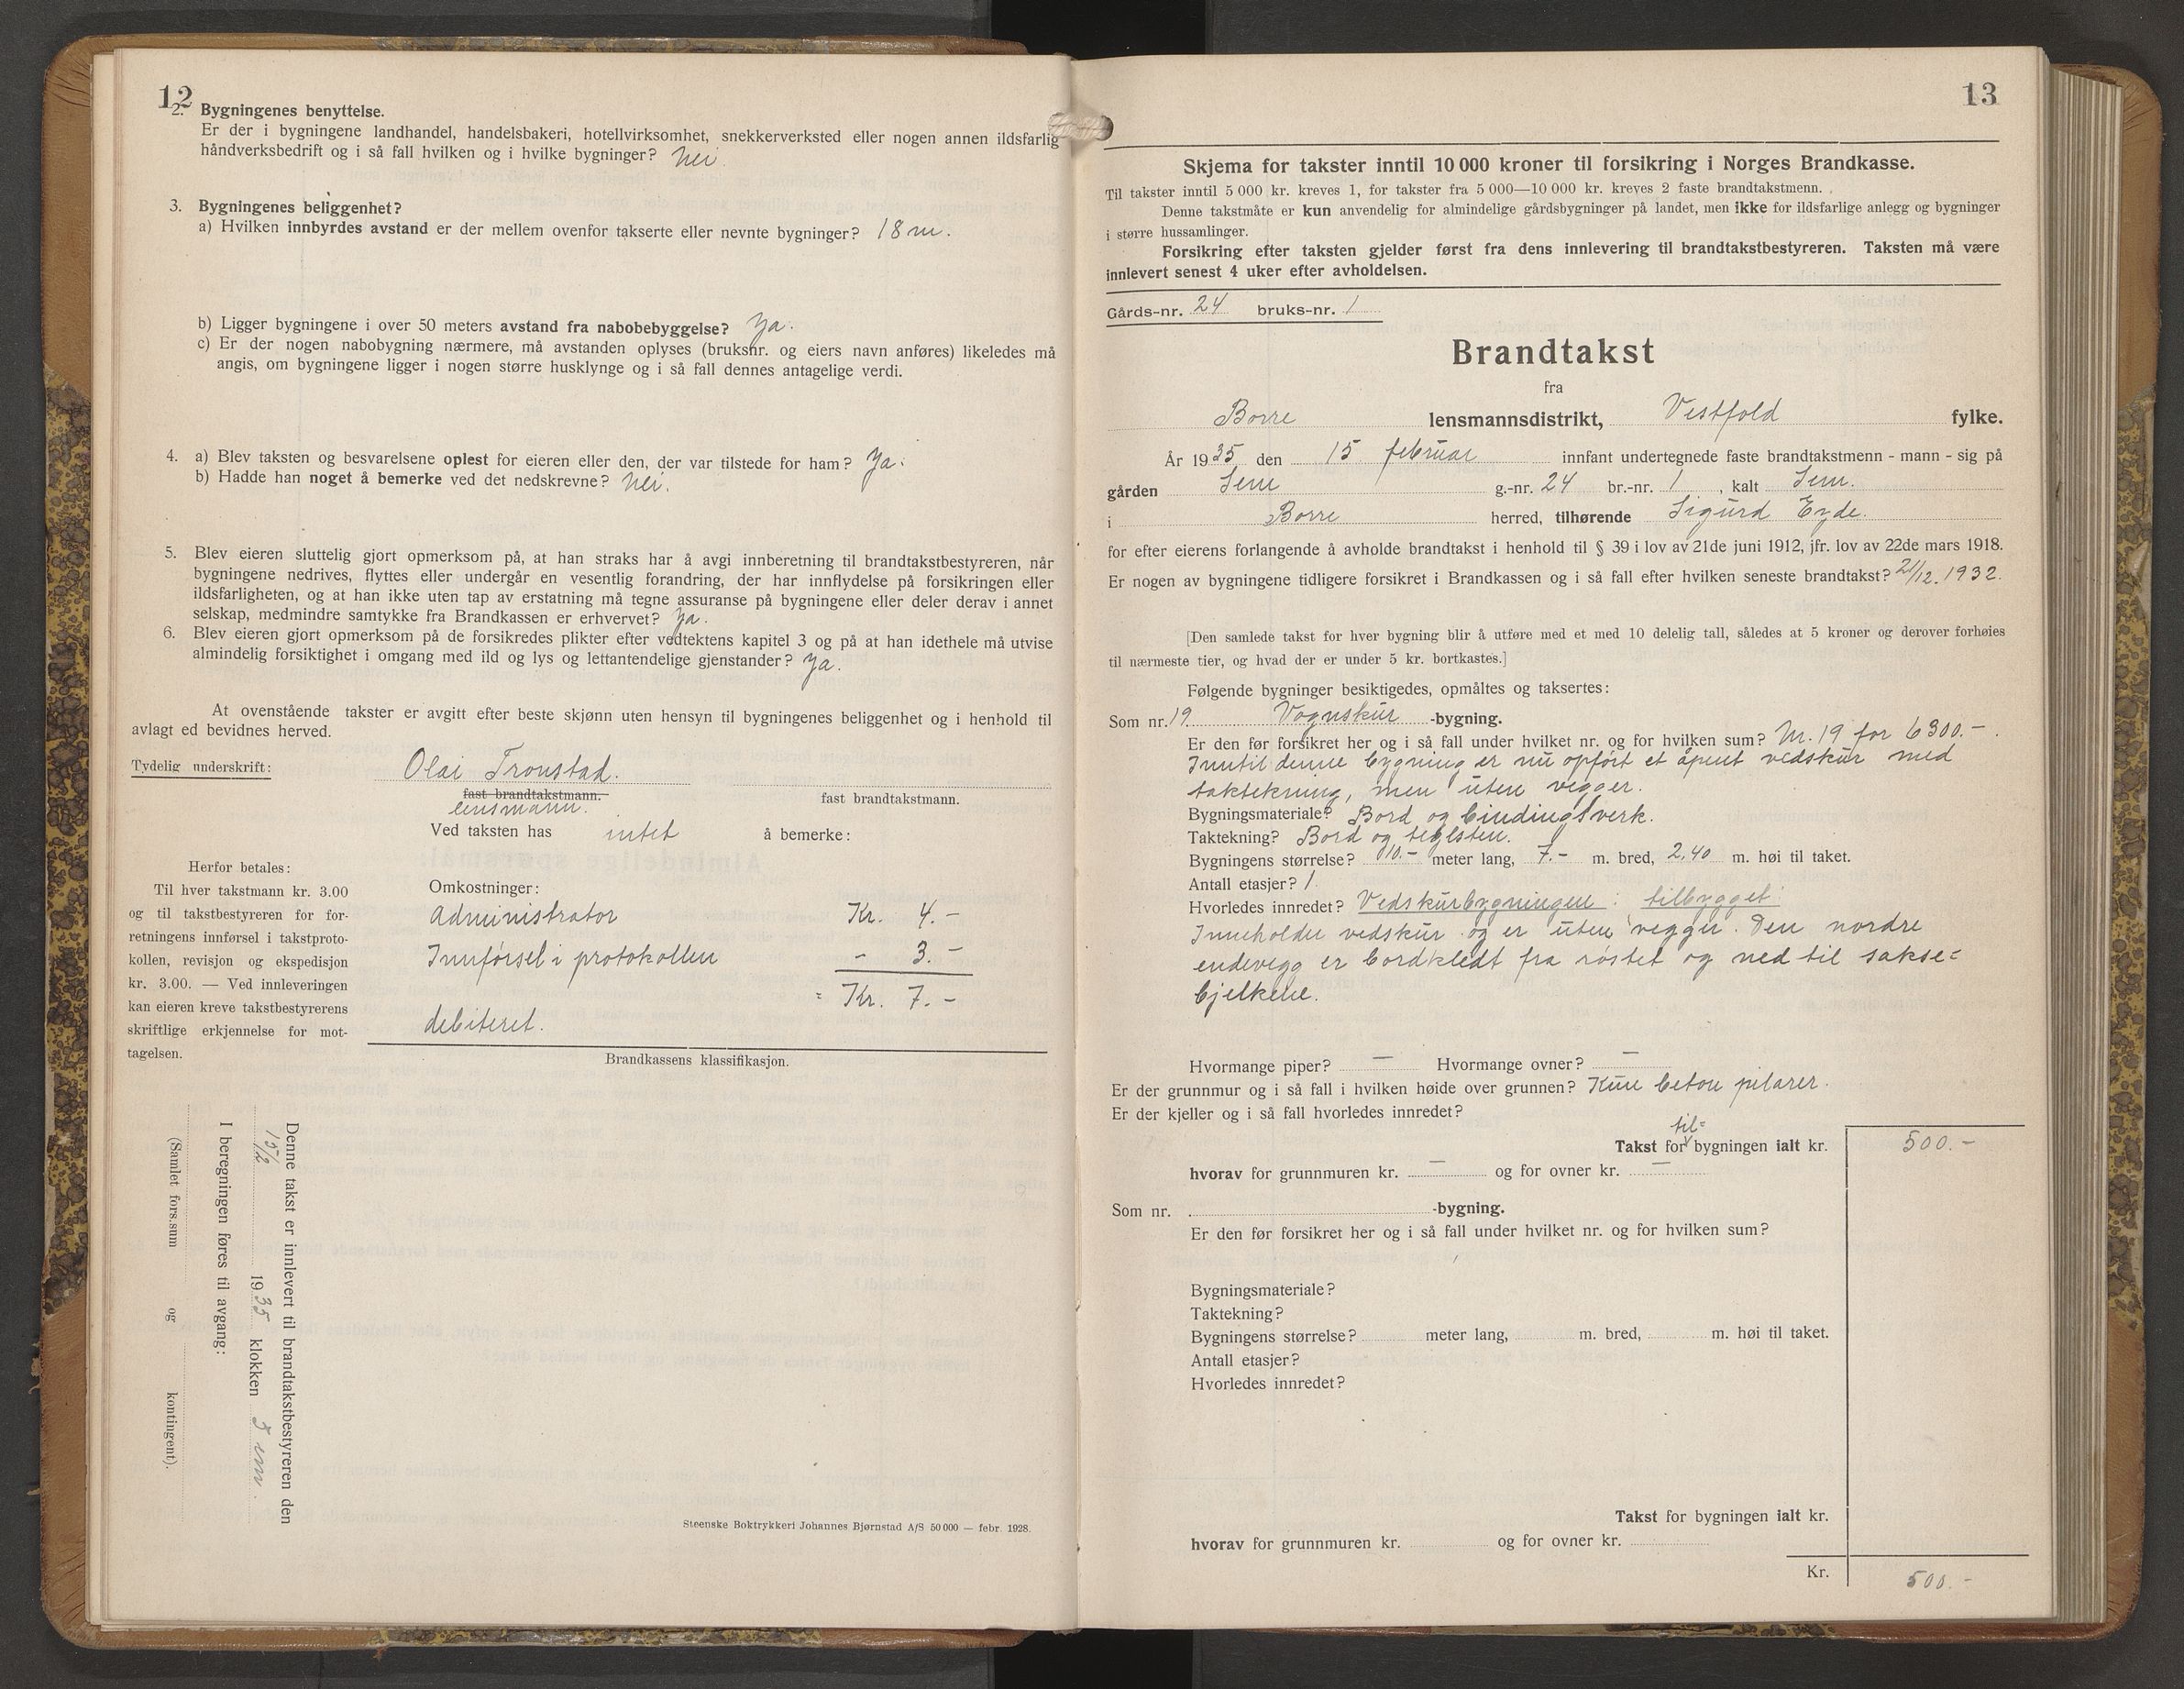 12
2. Bygningenes benyttelse.
Er der i bygningene landhandel, handelsbakeri, hotellvirksomhet, snekkerverksted eller nogen annen ildsfarlig
håndverksbedrift og i så fall hvilken og i hvilke bygninger? Nei.
3. Bygningenes beliggenhet?
a) Hvilken innbyrdes avstand er der mellem ovenfor takserte eller nevnte bygninger? 18 m.
b) Ligger bygningene i over 50 meters avstand fra nabobebyggelse? Ja.
c) Er der nogen nabobygning nærmere, må avstanden oplyses (bruksnr. og eiers navn anføres) likeledes må
angis, om bygningene ligger i nogen større husklynge og i så fall dennes antagelige verdi.
4. a) Blev taksten og besvarelsene oplest for eieren eller den, der var tilstede for ham? Ja.
b) Hadde han noget å bemerke ved det nedskrevne? Nei.
5. Blev eieren sluttelig gjort opmerksom på, at han straks har å avgi innberetning til brandtakstbestyreren, når
bygningene nedrives, flyttes eller undergår en vesentlig forandring, der har innflydelse på forsikringen eller
ildsfarligheten, og at han ikke uten tap av erstatning må tegne assuranse på bygningene eller deler derav i annet
selskap, medmindre samtykke fra Brandkassen er erhvervet? Ja.
6. Blev eieren gjort opmerksom på de forsikredes plikter efter vedtektens kapitel 3 og på at han idethele må utvise
almindelig forsiktighet i omgang med ild og lys og lettantendelige gjenstander? Ja.
At ovenstående takster er avgitt efter beste skjønn uten hensyn til bygningenes beliggenhet og i henhold til
avlagt ed bevidnes herved.
Tydelig underskrift: Olai Tronstad.
fast brandtakstmann. fast brandtakstmann.
lensmann.
Ved taksten has intet å bemerke:
Herfor betales:
Til hver takstmann kr. 3.00
og til takstbestyreren for for-
retningens innførsel i takstproto-
kollen, revisjon og ekspedisjon
kr. 3.00. — Ved innleveringen
kan eieren kreve takstbestyrerens
skriftlige erkjennelse for mot-
tagelsen.
Omkostninger:
Administrator Kr. 4.-
Innførsel i protokollen - 3.-
= Kr. 7.-
debiteret.
Brandkassens klassifikasjon.
Denne takst er innlevert til brandtakstbestyreren den
15/2 1935 klokken 5 em.
I beregningen føres til avgang:
(Samlet fors.sum og kontingent).
Steenske Boktrykkeri Johannes Bjørnstad A/S 50 000 — febr. 1928.
13
Skjema for takster inntil 10 000 kroner til forsikring i Norges Brandkasse.
Til takster inntil 5 000 kr. kreves 1, for takster fra 5 000—10 000 kr. kreves 2 faste brandtakstmenn.
Denne takstmåte er kun anvendelig for almindelige gårdsbygninger på landet, men ikke for ildsfarlige anlegg og bygninger
i større hussamlinger.
Forsikring efter taksten gjelder først fra dens innlevering til brandtakstbestyreren. Taksten må være
innlevert senest 4 uker efter avholdelsen.
Gårds-nr. 24 bruks-nr. 1
Brandtakst
fra
Borre lensmannsdistrikt, Vestfold fylke.
År 1935 den 15 februar innfant undertegnede faste brandtakstmenn - mann - sig på
gården Sem g.-nr. 24 br.-nr. 1, kalt Sem.
i Borre herred, tilhørende Sigurd Eyde.
for efter eierens forlangende å avholde brandtakst i henhold til § 39 i lov av 21de juni 1912, jfr. lov av 22de mars 1918.
Er nogen av bygningene tidligere forsikret i Brandkassen og i så fall efter hvilken seneste brandtakst? 21/12.1932.
[Den samlede takst for hver bygning blir å utføre med et med 10 delelig tall, således at 5 kroner og derover forhøies
til nærmeste tier, og hvad der er under 5 kr. bortkastes.]
Følgende bygninger besiktigedes, opmåltes og taksertes:
Som nr. 19. Vognskur -bygning.
Er den før forsikret her og i så fall under hvilket nr. og for hvilken sum? Nr. 19 for 6300.-.
Inntil denne bygning er nu opført et åpent vedskur med
taktekning, men uten vegger.
Bygningsmateriale? Bord og bindingsverk.
Taktekning? Bord og teglsten.
Bygningens størrelse? 10.- meter lang, 7.- m. bred, 2,40 m. høi til taket.
Antall etasjer? 1.
Hvorledes innredet? Vedskurbygningen: tilbygget:
Inneholder vedskur og er uten vegger. Den nordre
endevegg er bordkledt fra røstet og ned til sakse=
bjelkene.
Hvormange piper? — Hvormange ovner? —
Er der grunnmur og i så fall i hvilken høide over grunnen? Kun beton pilarer.
Er der kjeller og i så fall hvorledes innredet?
til=
Takst for bygningen ialt kr. 500.-
hvorav for grunnmuren kr. — og for ovner kr. —
Som nr. -bygning.
Er den før forsikret her og i så fall under hvilket nr. og for hvilken sum?
Bygningsmateriale?
Taktekning?
Bygningens størrelse? meter lang, m. bred, m. høi til taket.
Antall etasjer?
Hvorledes innredet?
Takst for bygningen ialt kr.
hvorav for grunnmuren kr. og for ovner kr.
Kr. 500.-